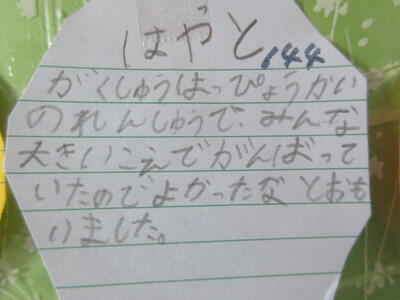 はやと
144
がくしゅうはっぴょうかい
のれんしゅうで、みんな
大きいこえでがんばって
いたのでよかったな とおも
いました。